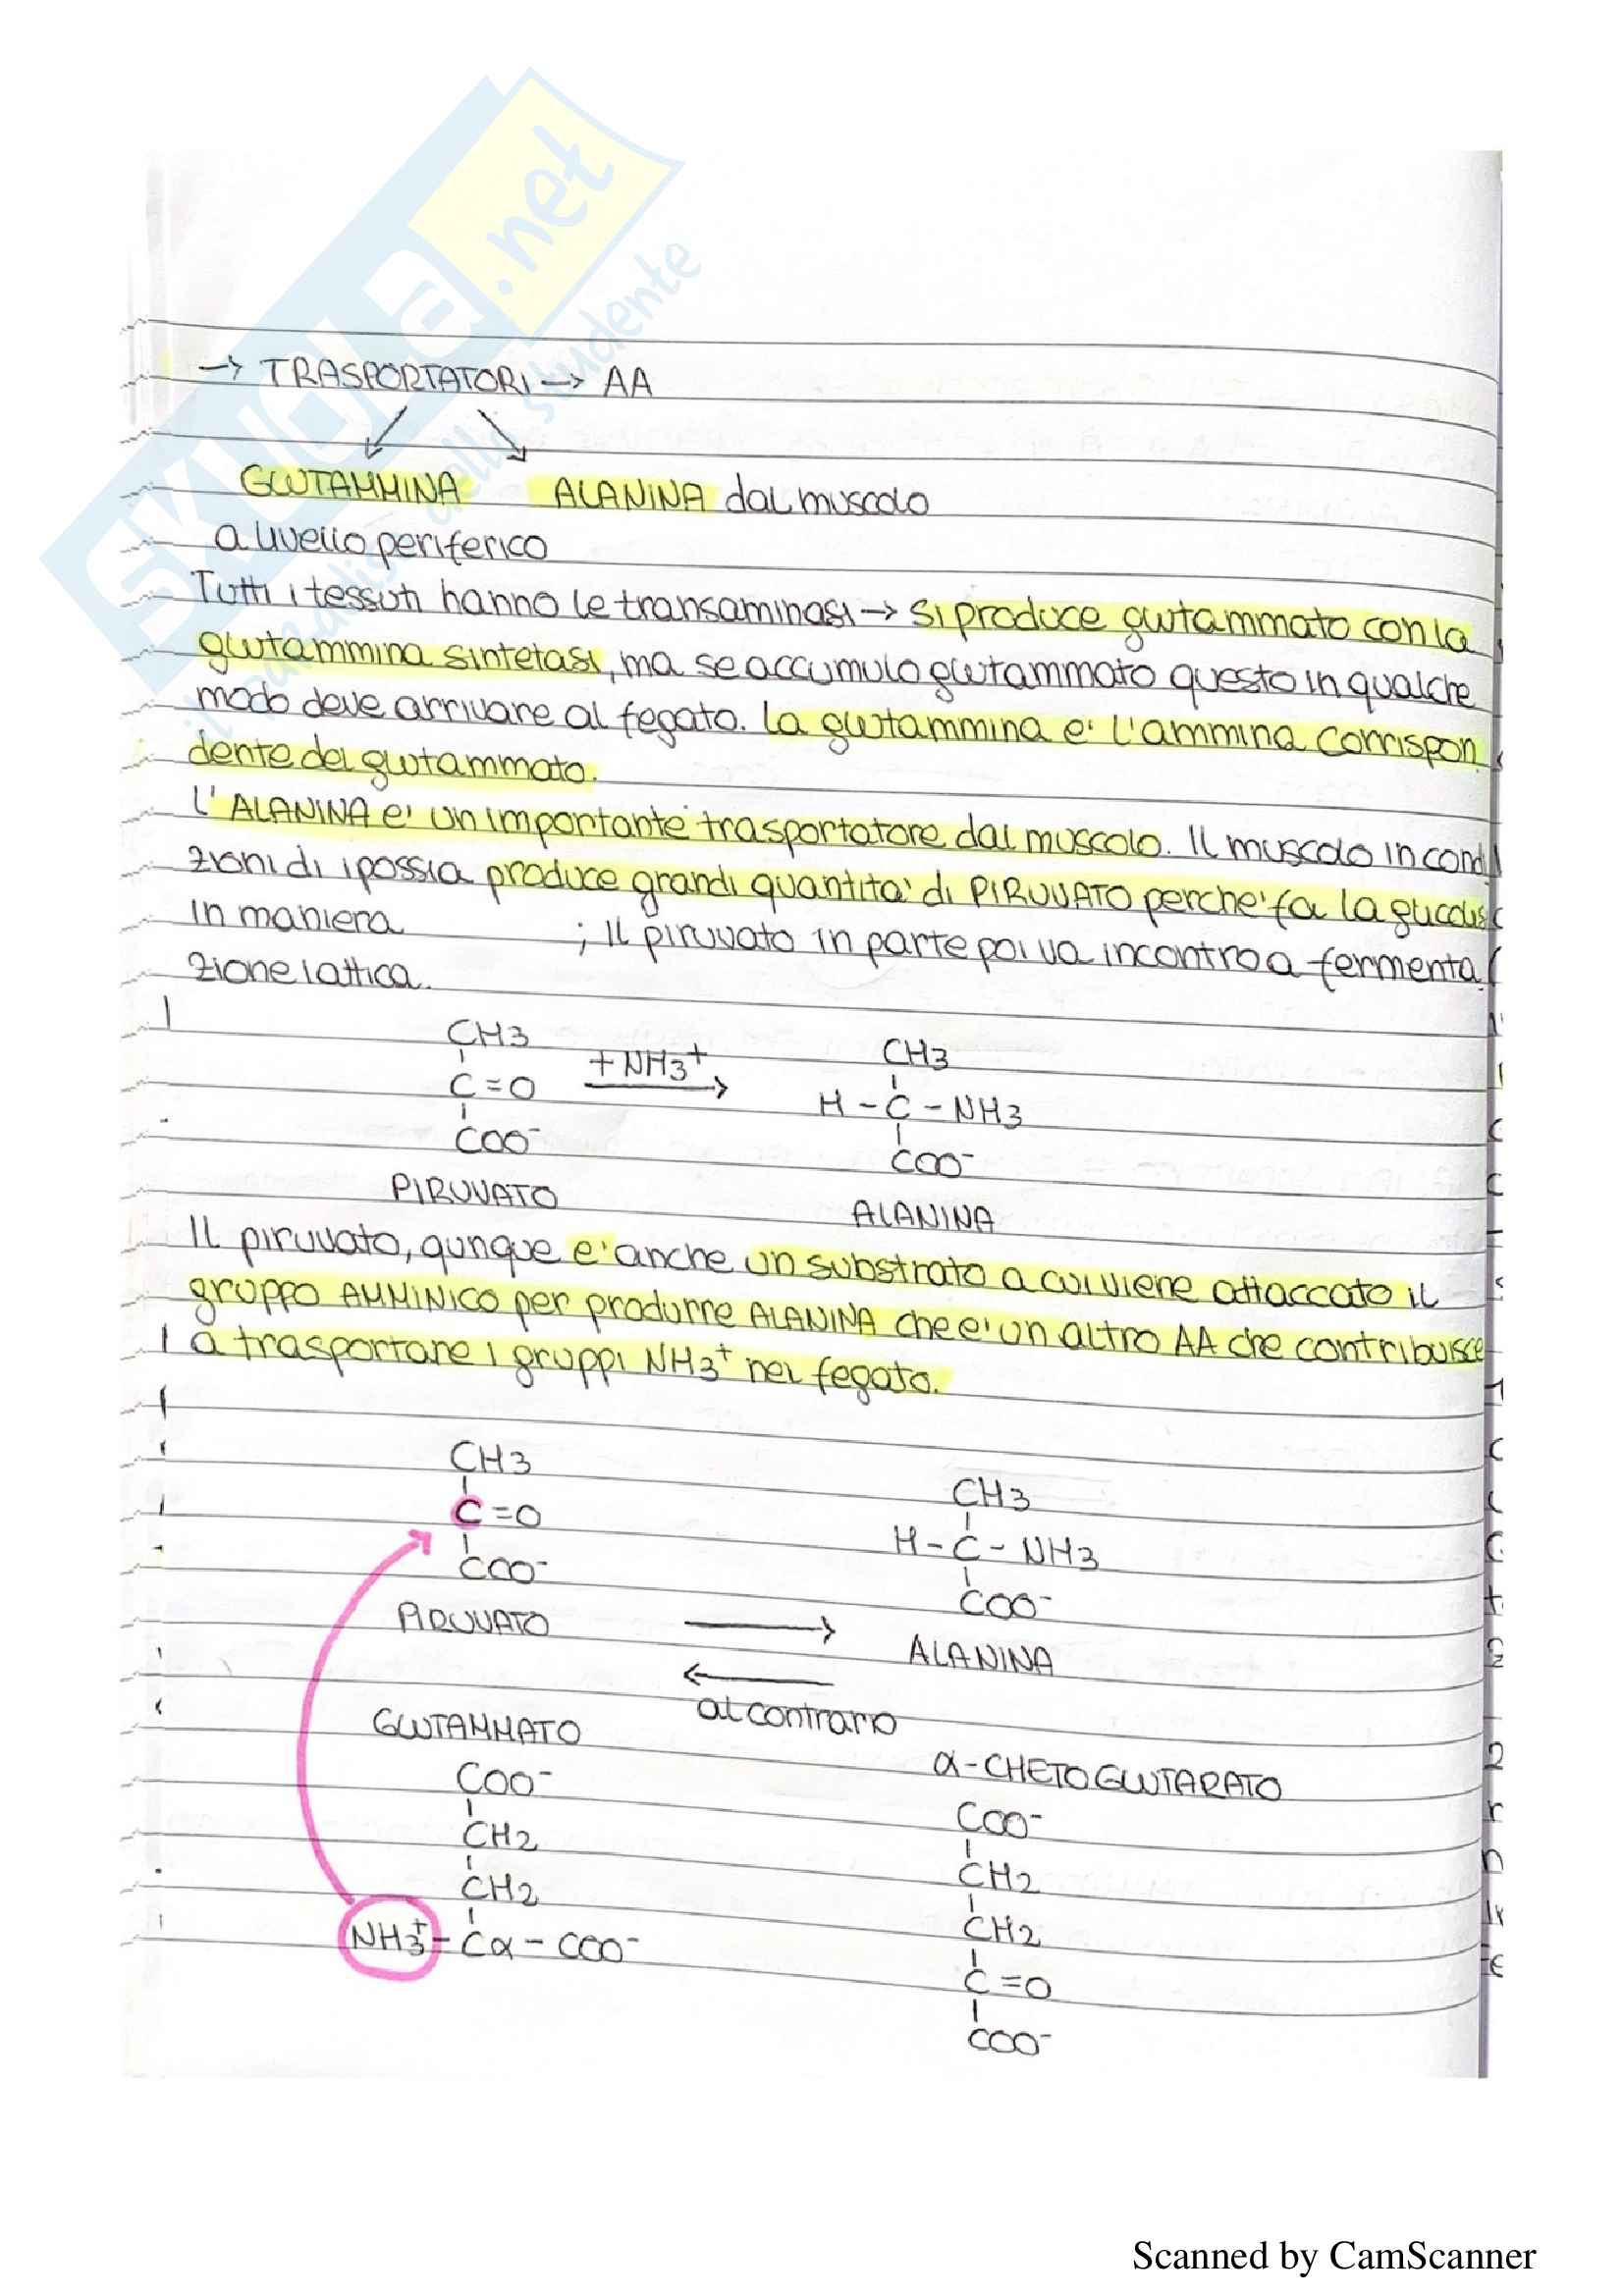 SKUOLA.net
il paradiso dello studente
→ TRASPORTATORI → AA
GLUTAMMINA ALANINA dal muscolo
a livello periferico
Tutti i tessuti hanno le transaminasi → si produce glutammato con la
glutammina sintetasi, ma se accumulo glutammato questo in qualche
modo deve arrivare al fegato. La glutammina e' l'ammina corrispon
dente del glutammato.
L'ALANINA e' un importante trasportatore dal muscolo. Il muscolo in condi
zioni di ipossia produce grandi quantita' di PIRUVATO perche' fa la glicolis
in maniera ; il piruvato in parte poi va incontro a fermenta
zione lattica.
CH3 +NH3+ CH3
C=O → H-C-NH3
COO- COO-
PIRUVATO ALANINA
Il piruvato, qunque e' anche un substrato a cui viene attaccato il
gruppo AMMINICO per produrre ALANINA che e' un altro AA che contribuisce
a trasportare i gruppi NH3+ nel fegato.
CH3 CH3
C=O H-C-NH3
COO- COO-
PIRUVATO → ALANINA
← al contrario
GLUTAMMATO α-CHETOGLUTARATO
COO- COO-
CH2 CH2
CH2 CH2
NH3+-Cα-COO- C=O
COO-
Scanned by CamScanner